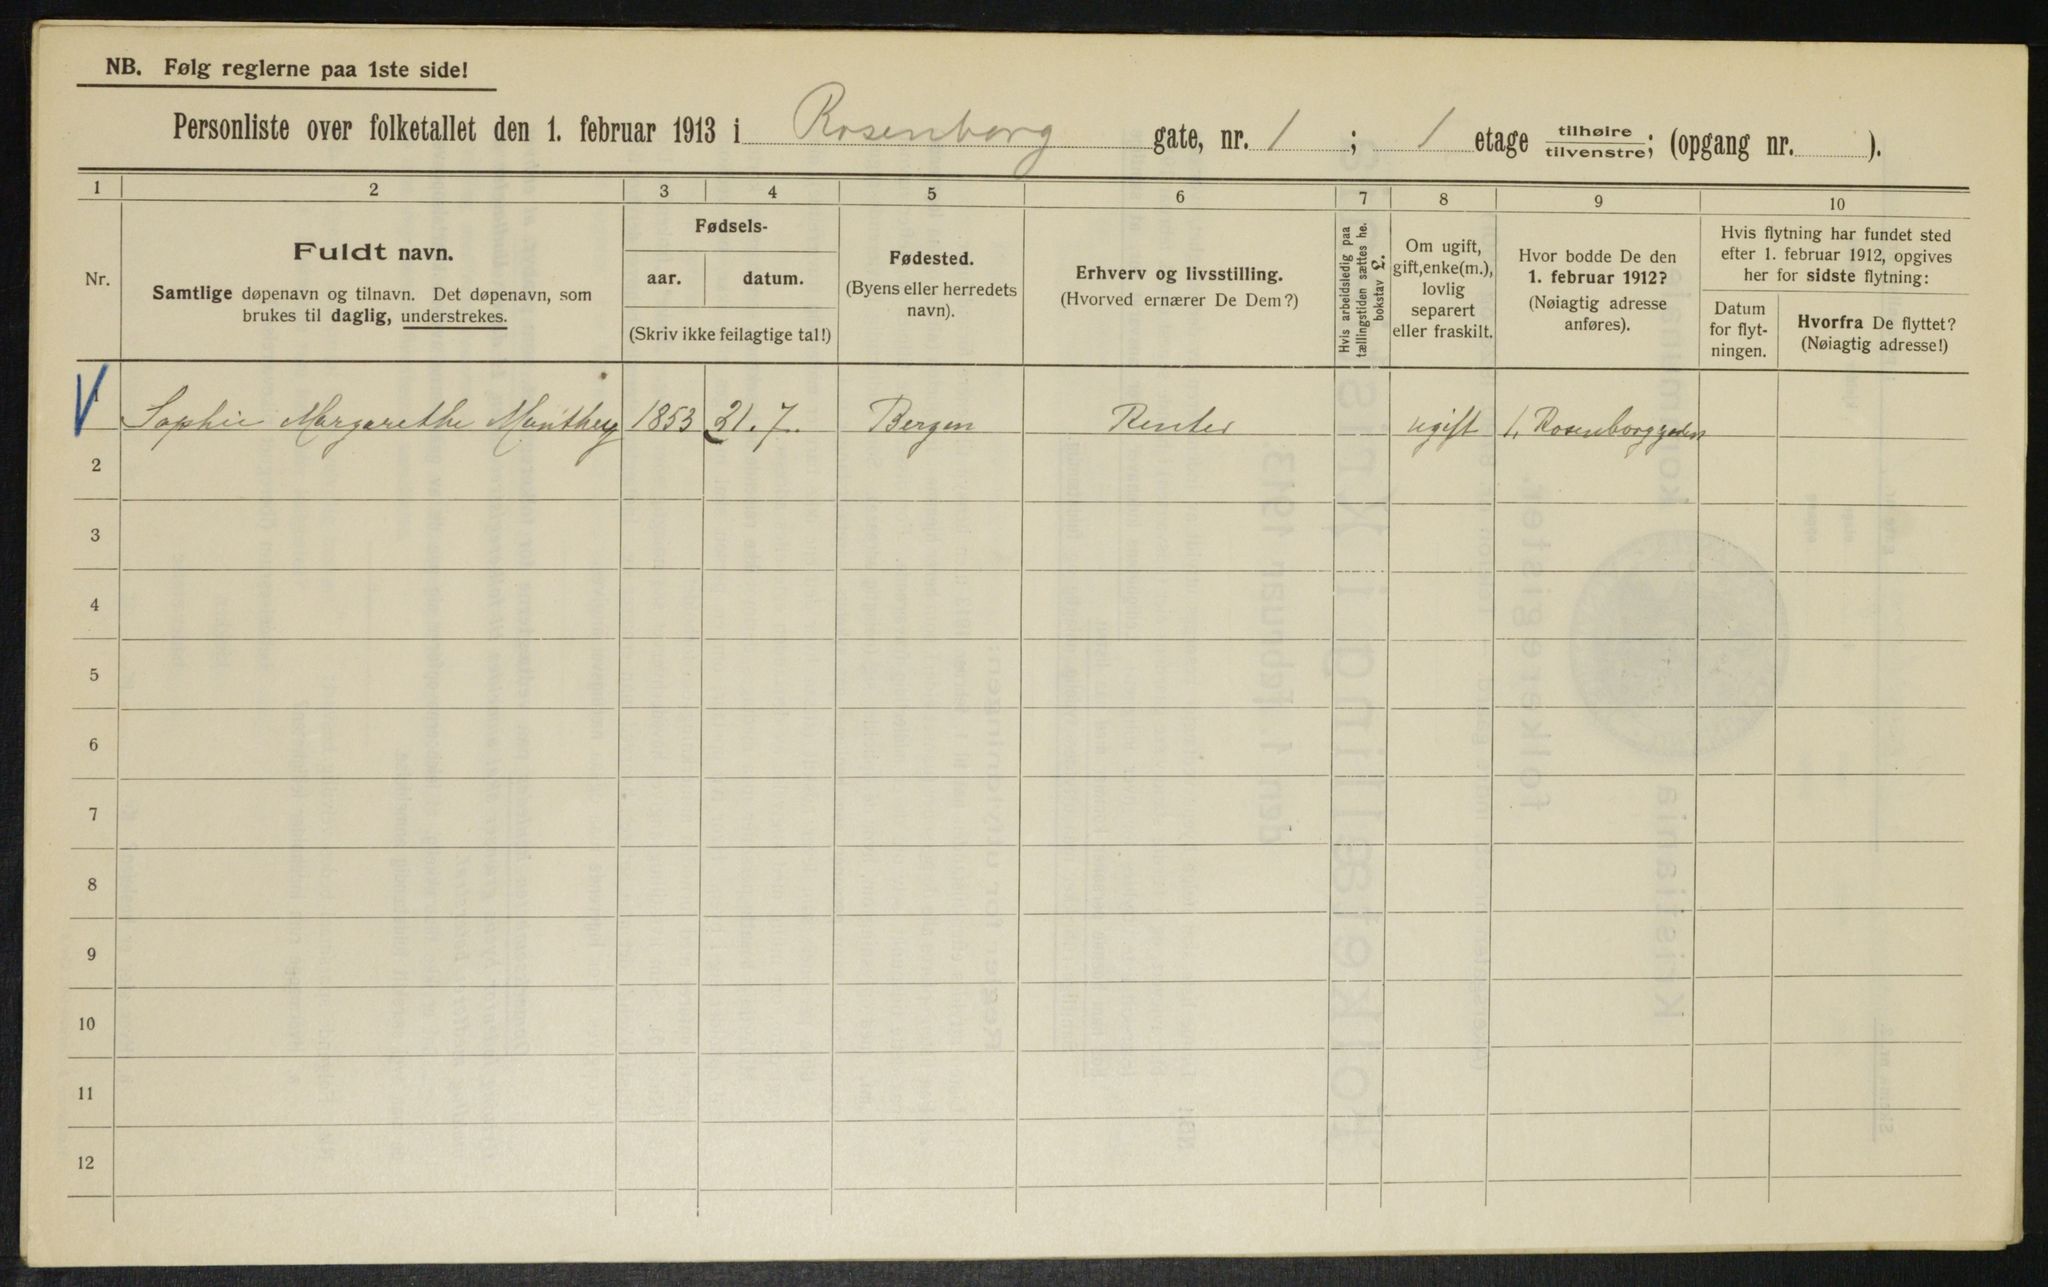 NB. Følg reglerne paa 1ste side!
Personliste over folketallet den 1. februar 1913 i Rosenborg gate, nr. 1 ; 1 etage tilhøire / tilvenstre; (opgang nr. ).
1 2 3 4 5 6 7 8 9 10
Nr.
Fuldt navn.
Samtlige døpenavn og tilnavn. Det døpenavn, som
brukes til daglig, understrekes.
Fødsels-
aar. datum.
(Skriv ikke feilagtige tal!)
Fødested.
(Byens eller herredets
navn).
Erhverv og livsstilling.
(Hvorved ernærer De Dem?)
Hvis arbeidsledig paa
tællingstiden sættes he.
bokstav L.
Om ugift,
gift, enke(m.),
lovlig
separert
eller fraskilt.
Hvor bodde De den
1. februar 1912?
(Nøiagtig adresse
anføres).
Hvis flytning har fundet sted
efter 1. februar 1912, opgives
her for sidste flytning:
Datum
for flyt-
ningen.
Hvorfra De flyttet?
(Nøiagtig adresse!)
1 Sophie Margarethe Manthey 1853 21.7. Bergen Renter ugift 1, Rosenborggaden
2
3
4
5
6
7
8
9
10
11
12